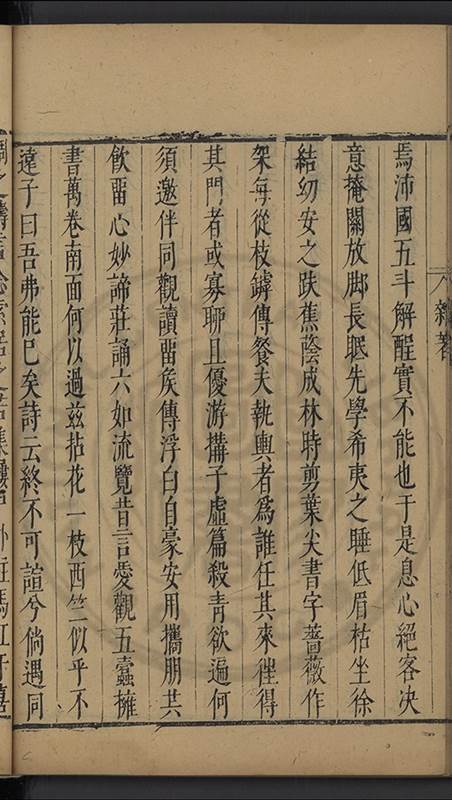 焉沛國五斗解酲實不能也于是息心絕客决
意掩關放脚長眠先學希夷之睡低眉枯坐徐
結幼安之趺蕉蔭成林時剪葉尖書字薔薇作
架每從枝罅傳餐夫執輿者爲誰任其來徃得
其門者或寡聊且優游搆子虛篇殺青欲遍何
須邀伴同觀讀畱矦傳浮白自豪安用攜朋共
飲畱心妙諦莊誦六如流覽昔言愛觀五蠹擁
書萬卷南面何以過兹拈花一枝西竺似乎不
遠子曰吾弗能已矣詩云終不可諼兮倘遇同